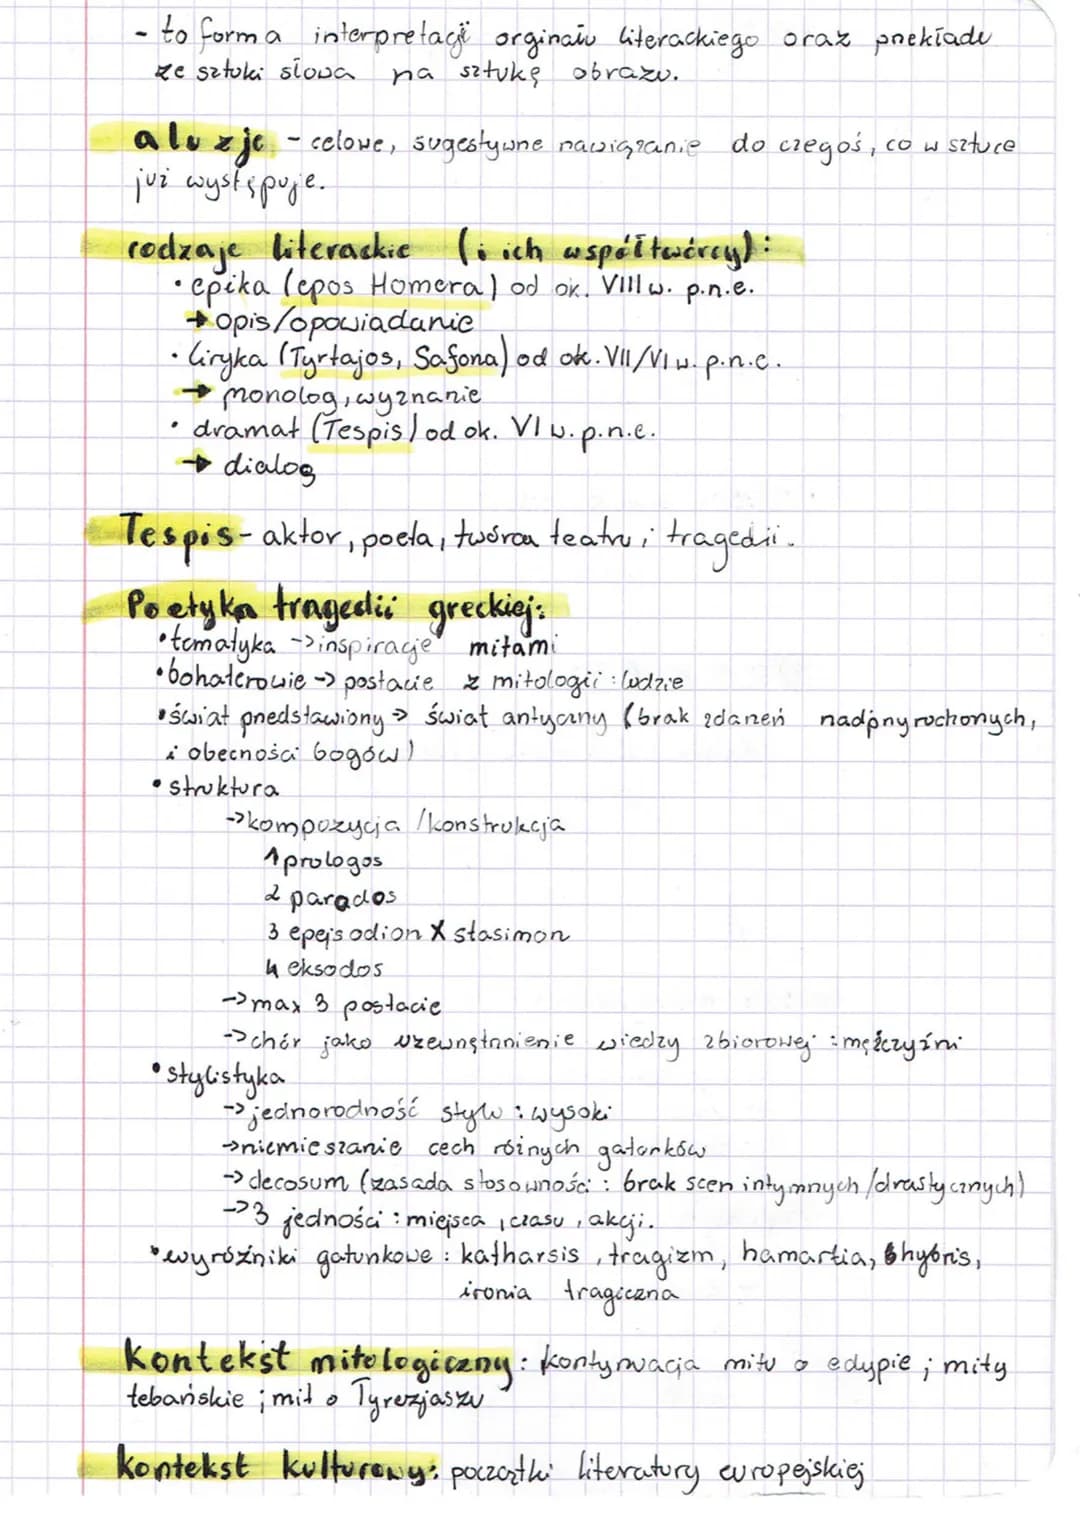 - to forma interpretacji orginału literackiego oraz przekładu
ze sztuki słowa na sztukę obrazu.
aluzje - celowe, sugestywne nawiązanie do czegoś, co w sztuce
już występuje.
rodzaje literackie (i ich współtwórcy):
• epika (epos Homera) od ok. VIII w. p.n.e.
→ opis/opowiadanie
• liryka (Tyrtajos, Safona) od ok. VII/VI w. p.n.e.
→ monolog, wyznanie
• dramat (Tespis) od ok. VI w. p.n.e.
→ dialog
Tespis - aktor, poeta, twórca teatru i tragedii.
Poetyka tragedii greckiej:
• tematyka -> inspiracje mitami
• bohaterowie -> postacie z mitologii : ludzie
• świat przedstawiony -> świat antyczny (brak zdarzeń nadprzyrochonych,
i obecności bogów)
• struktura
-> kompozycja /konstrukcja
1 prologos
2 parados
3 epejsodion X stasimon
4 eksodos
-> max 3 postacie
-> chór jako uzewnętrznienie wiedzy zbiorowej : mężczyźni
• stylistyka
-> jednorodność stylu : wysoki
-> niemieszanie cech różnych gatunków
-> decosum (zasada stosowności : brak scen intymnych /drastycznych)
-> 3 jedności : miejsca, czasu, akcji.
• wyróżniki gatunkowe : katharsis, tragizm, hamartia, hybris,
ironia tragiczna
Kontekst mitologiczny: kontynuacja mitu o edypie ; mity
tebańskie ; mit o Tyrezjaszu
kontekst kulturowy: początki literatury europejskiej